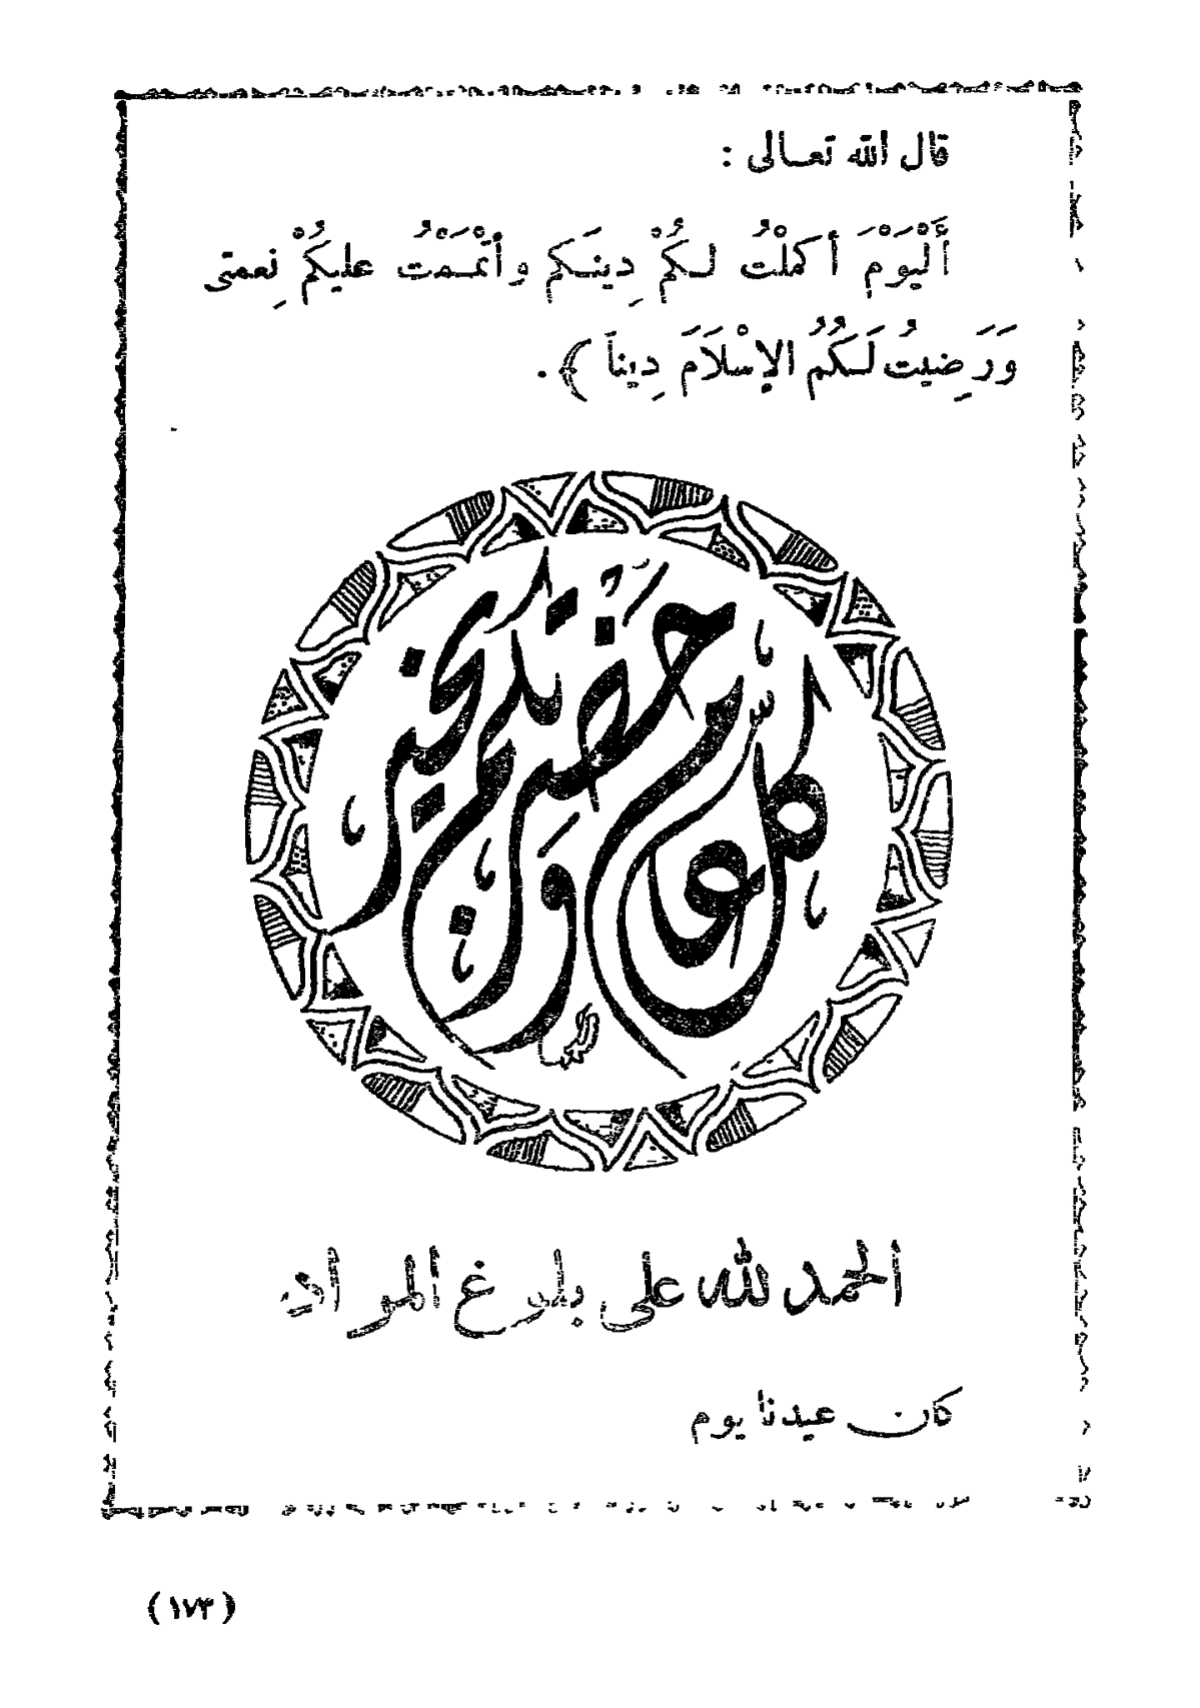 قال الله تعالى :
أَلْيَوْمَ أكمَلْتُ لكُمْ دِينَكم وأتْمَمْتُ عليكُمْ نِعمتى
وَرَضِيتُ لَكُمُ الإسْلَامَ دِيناَ ﴾ .
كل عام وحضرتكم بخير
الحمد لله على بلوغ المراد
كان عيدنا يوم
( ١٧٣ )